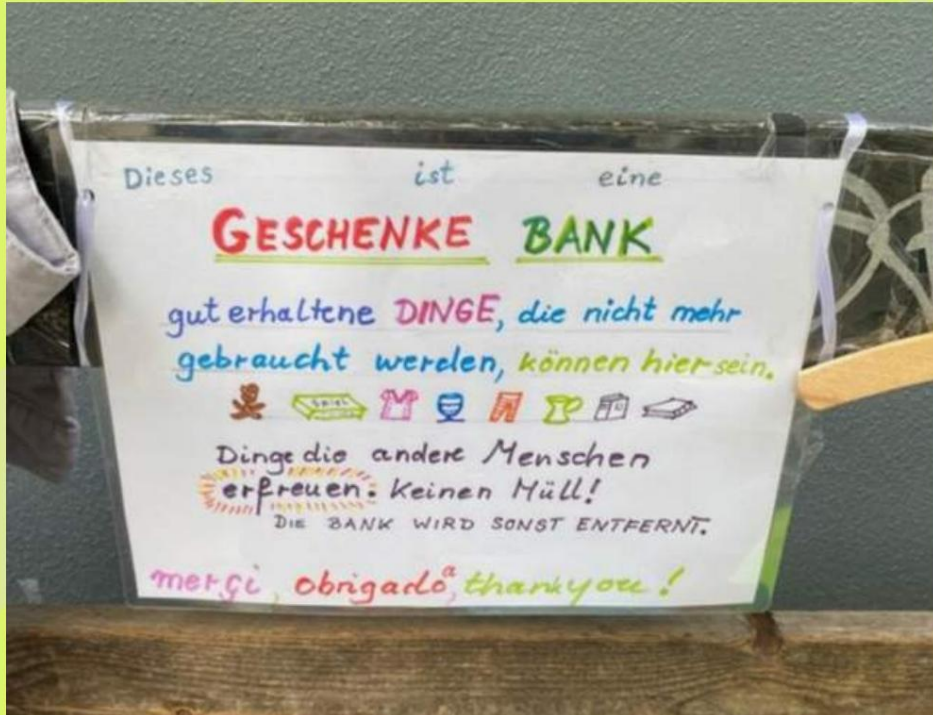 Dieses ist eine
GESCHENKE BANK
gut erhaltene DINGE, die nicht mehr
gebraucht werden, können hier sein.
SPIEL
Dinge die andere Menschen
erfreuen. Keinen Müll!
DIE BANK WIRD SONST ENTFERNT.
merçi, obrigado a, thankyou!